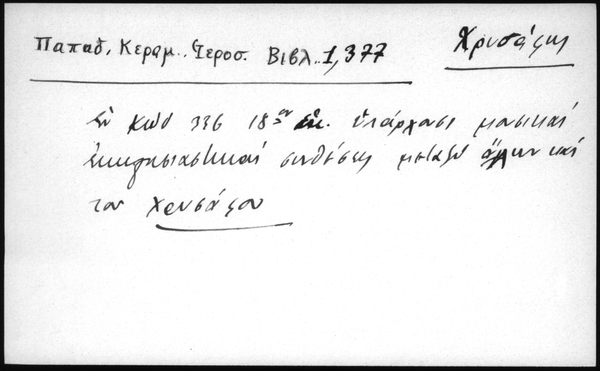 Παπαδ. Κεραμ.. Ἱεροσ. Βιβλ.. 1,377
Χρυσάφης
Ἐν κώδ 336 18ου αἰ. ὑπάρχουσι μουσικαί
ἐκκλησιαστικαί συνθέσεις μεταξύ ἄλλων καί
του Χρυσάφου